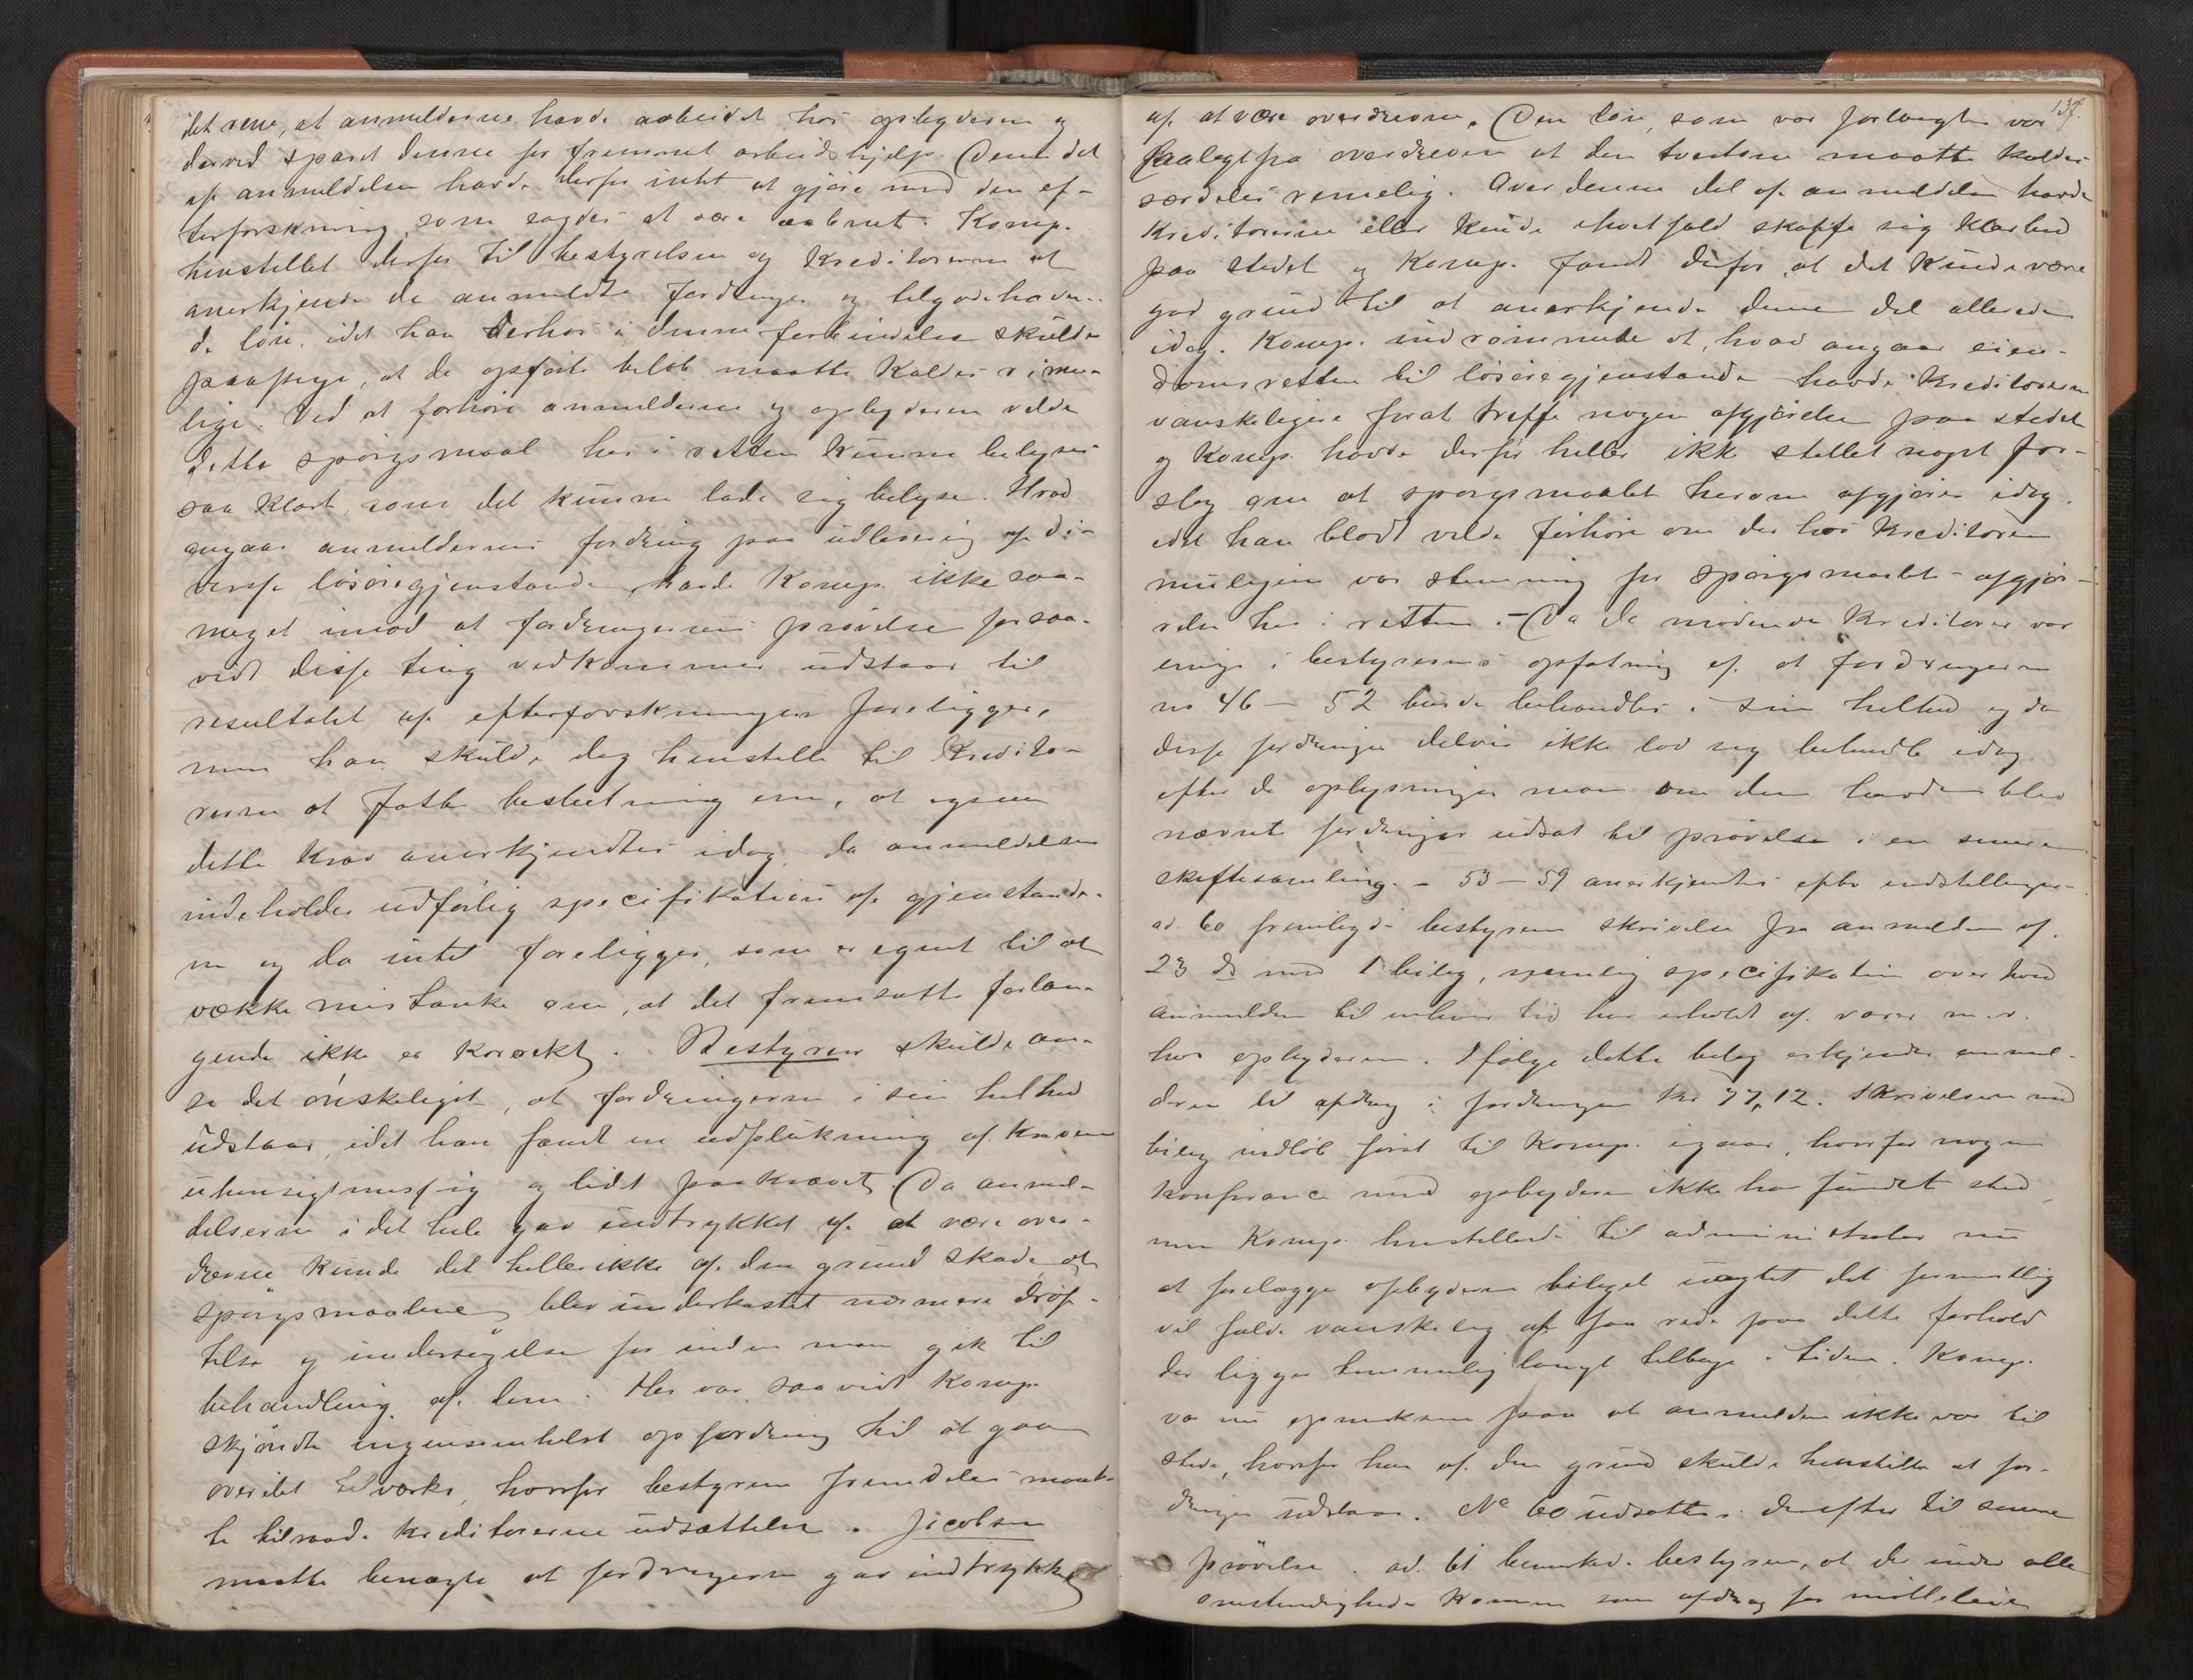 det rene, at anmelderne havde arbeidet hos opbyderen og
derved sparet denne for fremmet arbeidshjelp. Denne del
af anmeldelsen havde derfor intet at gjøre med den ef-
terforskning som sagdes at være aabnet. Komp.
henstillet derfor til bestyrelsen og kreditorerne at
anerkjende de anmeldte fordringer og tilgodehaven-
de løn, idet han derhos i denne forbindelse skulde
paapege, at de opførte beløb maatte kaldes rime-
lige. Ved at forhøre anmelderne og opbyderen vilde
dette spørgsmaal her i retten kunne belyses
saa klart, som det kunne lade sig belyse. Hvad
angaar anmeldernes fordring paa udlevering af di-
verse løsøregjenstande, havde Komp. ikke saa-
meget imod at fordringernes prøvelse forsaa-
vidt disse ting vedkommer udstaar til
resultatet af efterforskningen foreligger,
men han skulde dog henstille til kredito-
rerne at fatte beslutning om, at ogsaa
dette krav anerkjendtes idag, da anmeldelsen
indeholder udførlig specifikation af gjenstande-
ne og da intet foreligger, som er egnet til at
vække mistanke om, at det fremsatte forlan-
gende ikke er korrekt. Bestyreren skulde an-
se det ønskeligst, at fordringerne i sin helhed
udstaar, idet han fandt en udplukning af kravene
uhensigtmessig og lidt paakrævet. Da anmel-
delserne i det hele gav indtrykket af at være over-
drevne kunde det heller ikke af den grund skade at
spørgsmaalene blev underkastet nærmere drøf-
telse og undersøgelse før inden man gik til
behandling af dem. Her var saavidt Komp.
skjønte ingensomhelst opfordring til at gaa
overilet tilverks, hvorfor bestyreren fremdeles maat-
te tilraade kreditorerne udsættelse. Jacobsen
maatte benægte at fordringerne gav indtrykket
137.
af at være overdrevne. Den løn, som var forlangt var
saalangtfra overdreven at den tvertom maatte kaldes
særdeles rimelig. Over denne del af anmeldelsen havde
Kreditorerne eller kunde ihvertfald skaffe sig klarhed
paa stedet og Komp. fandt derfor, at det kunde være
god grund til at anerkjende denne del allerede
idag. Komp. indrømmede at, hvad angaar eien-
domsretten til løsøregjenstande havde Kreditorerne
vanskeligere for at treffe nogen afgjørelse paa stedet
og Komp. havde derfor heller ikke stillet noget for-
slag om at spørgsmaalet herom afgjøres idag.
idet han blodt vilde forhøre om der hos Kreditorerne
muligens var stemning for spørgsmaalets afgjør-
relse her i retten. – Da de mødende Kreditorer var
enige i bestyrerens opfatning af at fordringerne
no 46 – 52 burde behandles i sin helhed og da
disse fordringer delvis ikke lod sig behandle idag
efter de oplysninger man om dem havde blev
nævnte fordringer udsat til prøvelse i en senere
skiftesamling. – 53 – 59 anerkjendtes efter indstillingen.
ad. 60 fremlagde bestyreren skrivelse fra anmelderen af.
23 ds med 1 bilag, nemlig specifikation over hvad
anmelderen til enhver tid har erholdt af varer m.v.
hos opbyderen. Ifølge dette bilag erkjender anmel-
deren til afdrag i fordringen kr 77,12. Skrivelsen med
bilag indløb først til Komp. igaar, hvorfor nogen
konferance med opbyderen ikke har fundet sted,
men Komp. henstillede til administrator nu
at forelægge opbyderen bilaget uagtet det formentlig
vil falde vanskelig at faa rede paa dette forhold
der ligger temmelig langt tilbage i tiden. Komp.
var nu opmerksom paa at anmelderen ikke var til
stede, hvorfor han af den grund skulde henstille at for-
dringen udstaar. No 60 udsattes derefter til senere
prøvelse. ad. 61 bemerkede bestyreren, at der under alle
omstendigheder komme som afdrag for mølleleie